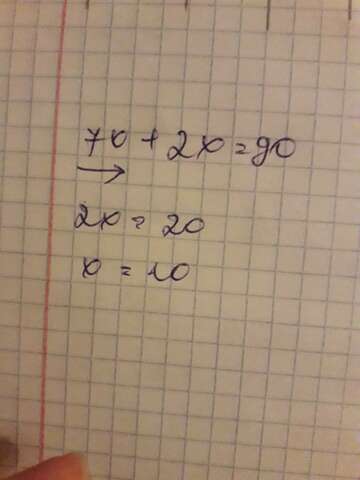 70 + 2x = 90
2x = 20
x = 10